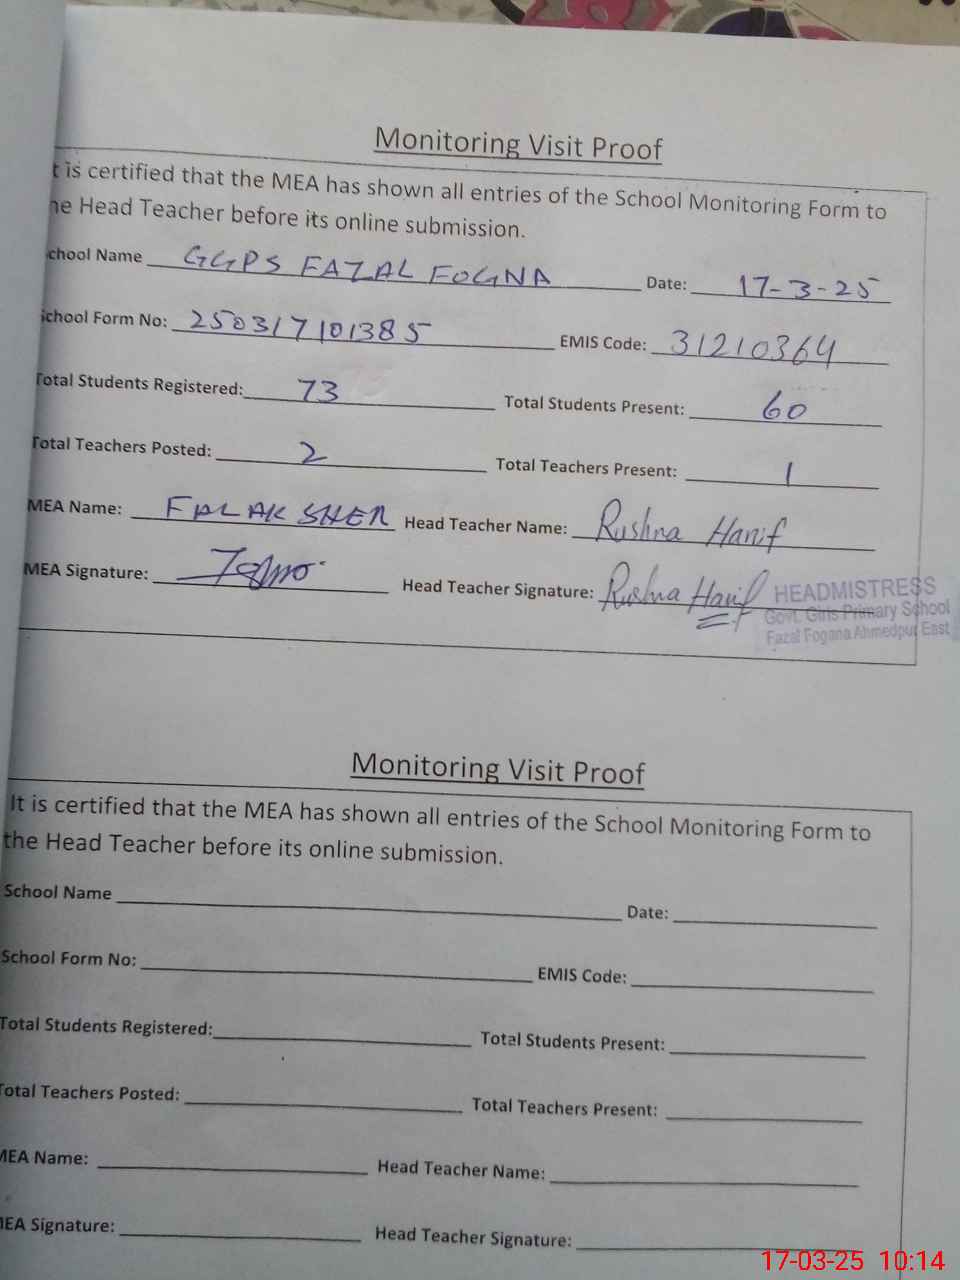 Monitoring Visit Proof
t is certified that the MEA has shown all entries of the School Monitoring Form to
he Head Teacher before its online submission.
chool Name GGPS FAZAL FOGNA Date: 17-3-25
chool Form No: 250317101385 EMIS Code: 31210364
Total Students Registered: 73 Total Students Present: 60
Total Teachers Posted: 2 Total Teachers Present: 1
MEA Name: FALAK SHER Head Teacher Name: Rushna Hanif
MEA Signature: Head Teacher Signature: Rushna Hanif
HEADMISTRESS
Govt. Girls Primary School
Fazal Fogana Ahmedpur East
Monitoring Visit Proof
It is certified that the MEA has shown all entries of the School Monitoring Form to
the Head Teacher before its online submission.
School Name Date:
School Form No: EMIS Code:
Total Students Registered: Total Students Present:
Total Teachers Posted: Total Teachers Present:
MEA Name: Head Teacher Name:
MEA Signature: Head Teacher Signature:
17-03-25 10:14